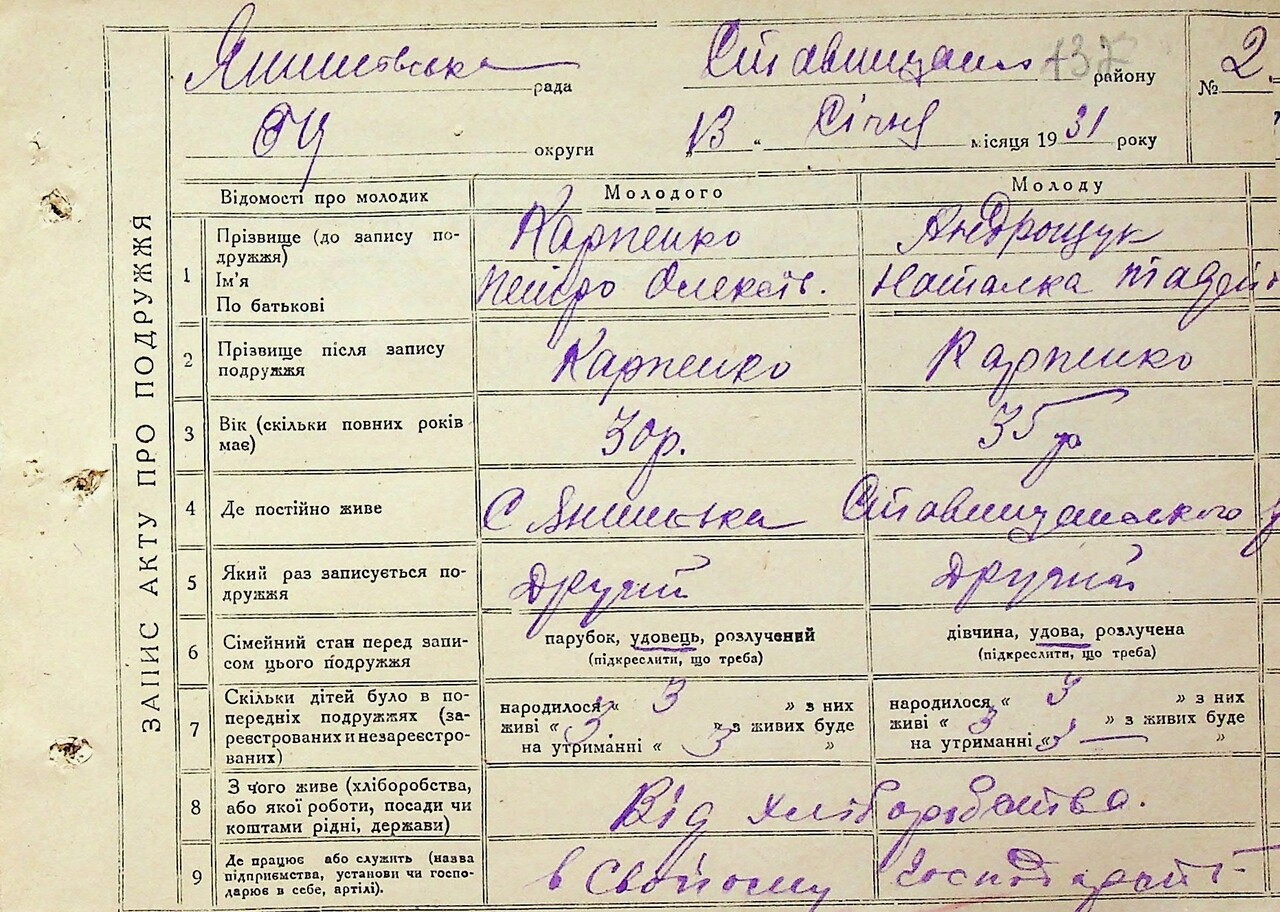 ЗАПИС АКТУ ПРО ПОДРУЖЖЯ
рада Ставищансь 137 району № 2
округи „13 “ Січня місяця 1931 року
Відомості про молодих Молодого Молоду
1 Прізвище (до запису по- Карпенко Андрощук
дружжя)
Ім'я Петро Олексів. Наталка
По батькові
2 Прізвище після запису Карпенко Карпенко
подружжя
3 Вік (скільки повних років 30р. 35
має)
4 Де постійно живе С Ставищанського
5 Який раз записується по- Другий Другий
дружжя
6 Сімейний стан перед запи- парубок, удовець, розлучений дівчина, удова, розлучена
сом цього подружжя (підкреслити, що треба) (підкреслити, що треба)
7 Скільки дітей було в по- народилося „ 3 ” з них народилося „ 3 ” з них
передніх подружжях (за- живі „ 3 ” з живих буде живі „ 3 ” з живих буде
реєстрованих и незареєстро- на утриманні „ 3 ” на утриманні „ 3 ”
ваних)
8 З чого живе (хліборобства, Від хліборобства.
або якої роботи, посади чи
коштами рідні, держави)
9 Де працює або служить (назва в свойому господарстві
підприємства, установи чи госпо-
дарює в себе, артілі).